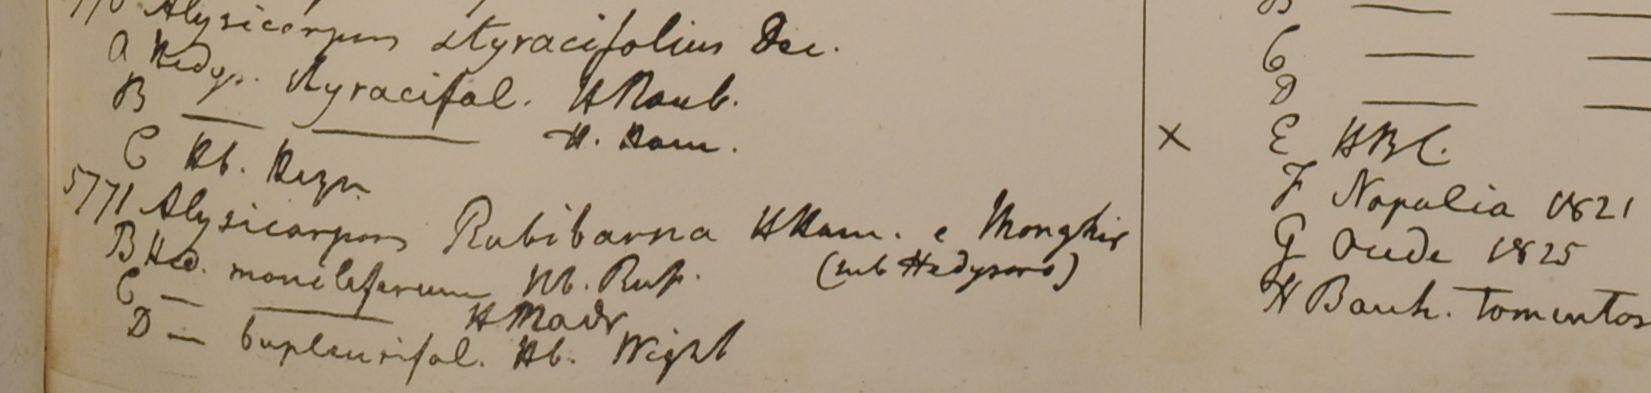 5770 Alysicarpus styracifolius Dec.
A Hedys. styracifol. H Roxb.
B — — H. Ham.
C Hb. Heyn
5771 Alysicarpus Rubibarna HHam. e Monghir
(sub Hedysaro)
B Hed. moniliferum Hb. Rus.
C — — H Madr
D — bupleurifol. Hb. Wight
B — —
C — —
D — —
× E HBC.
F Napalia 1821
G Oude 1825
H Bauh. tomentos